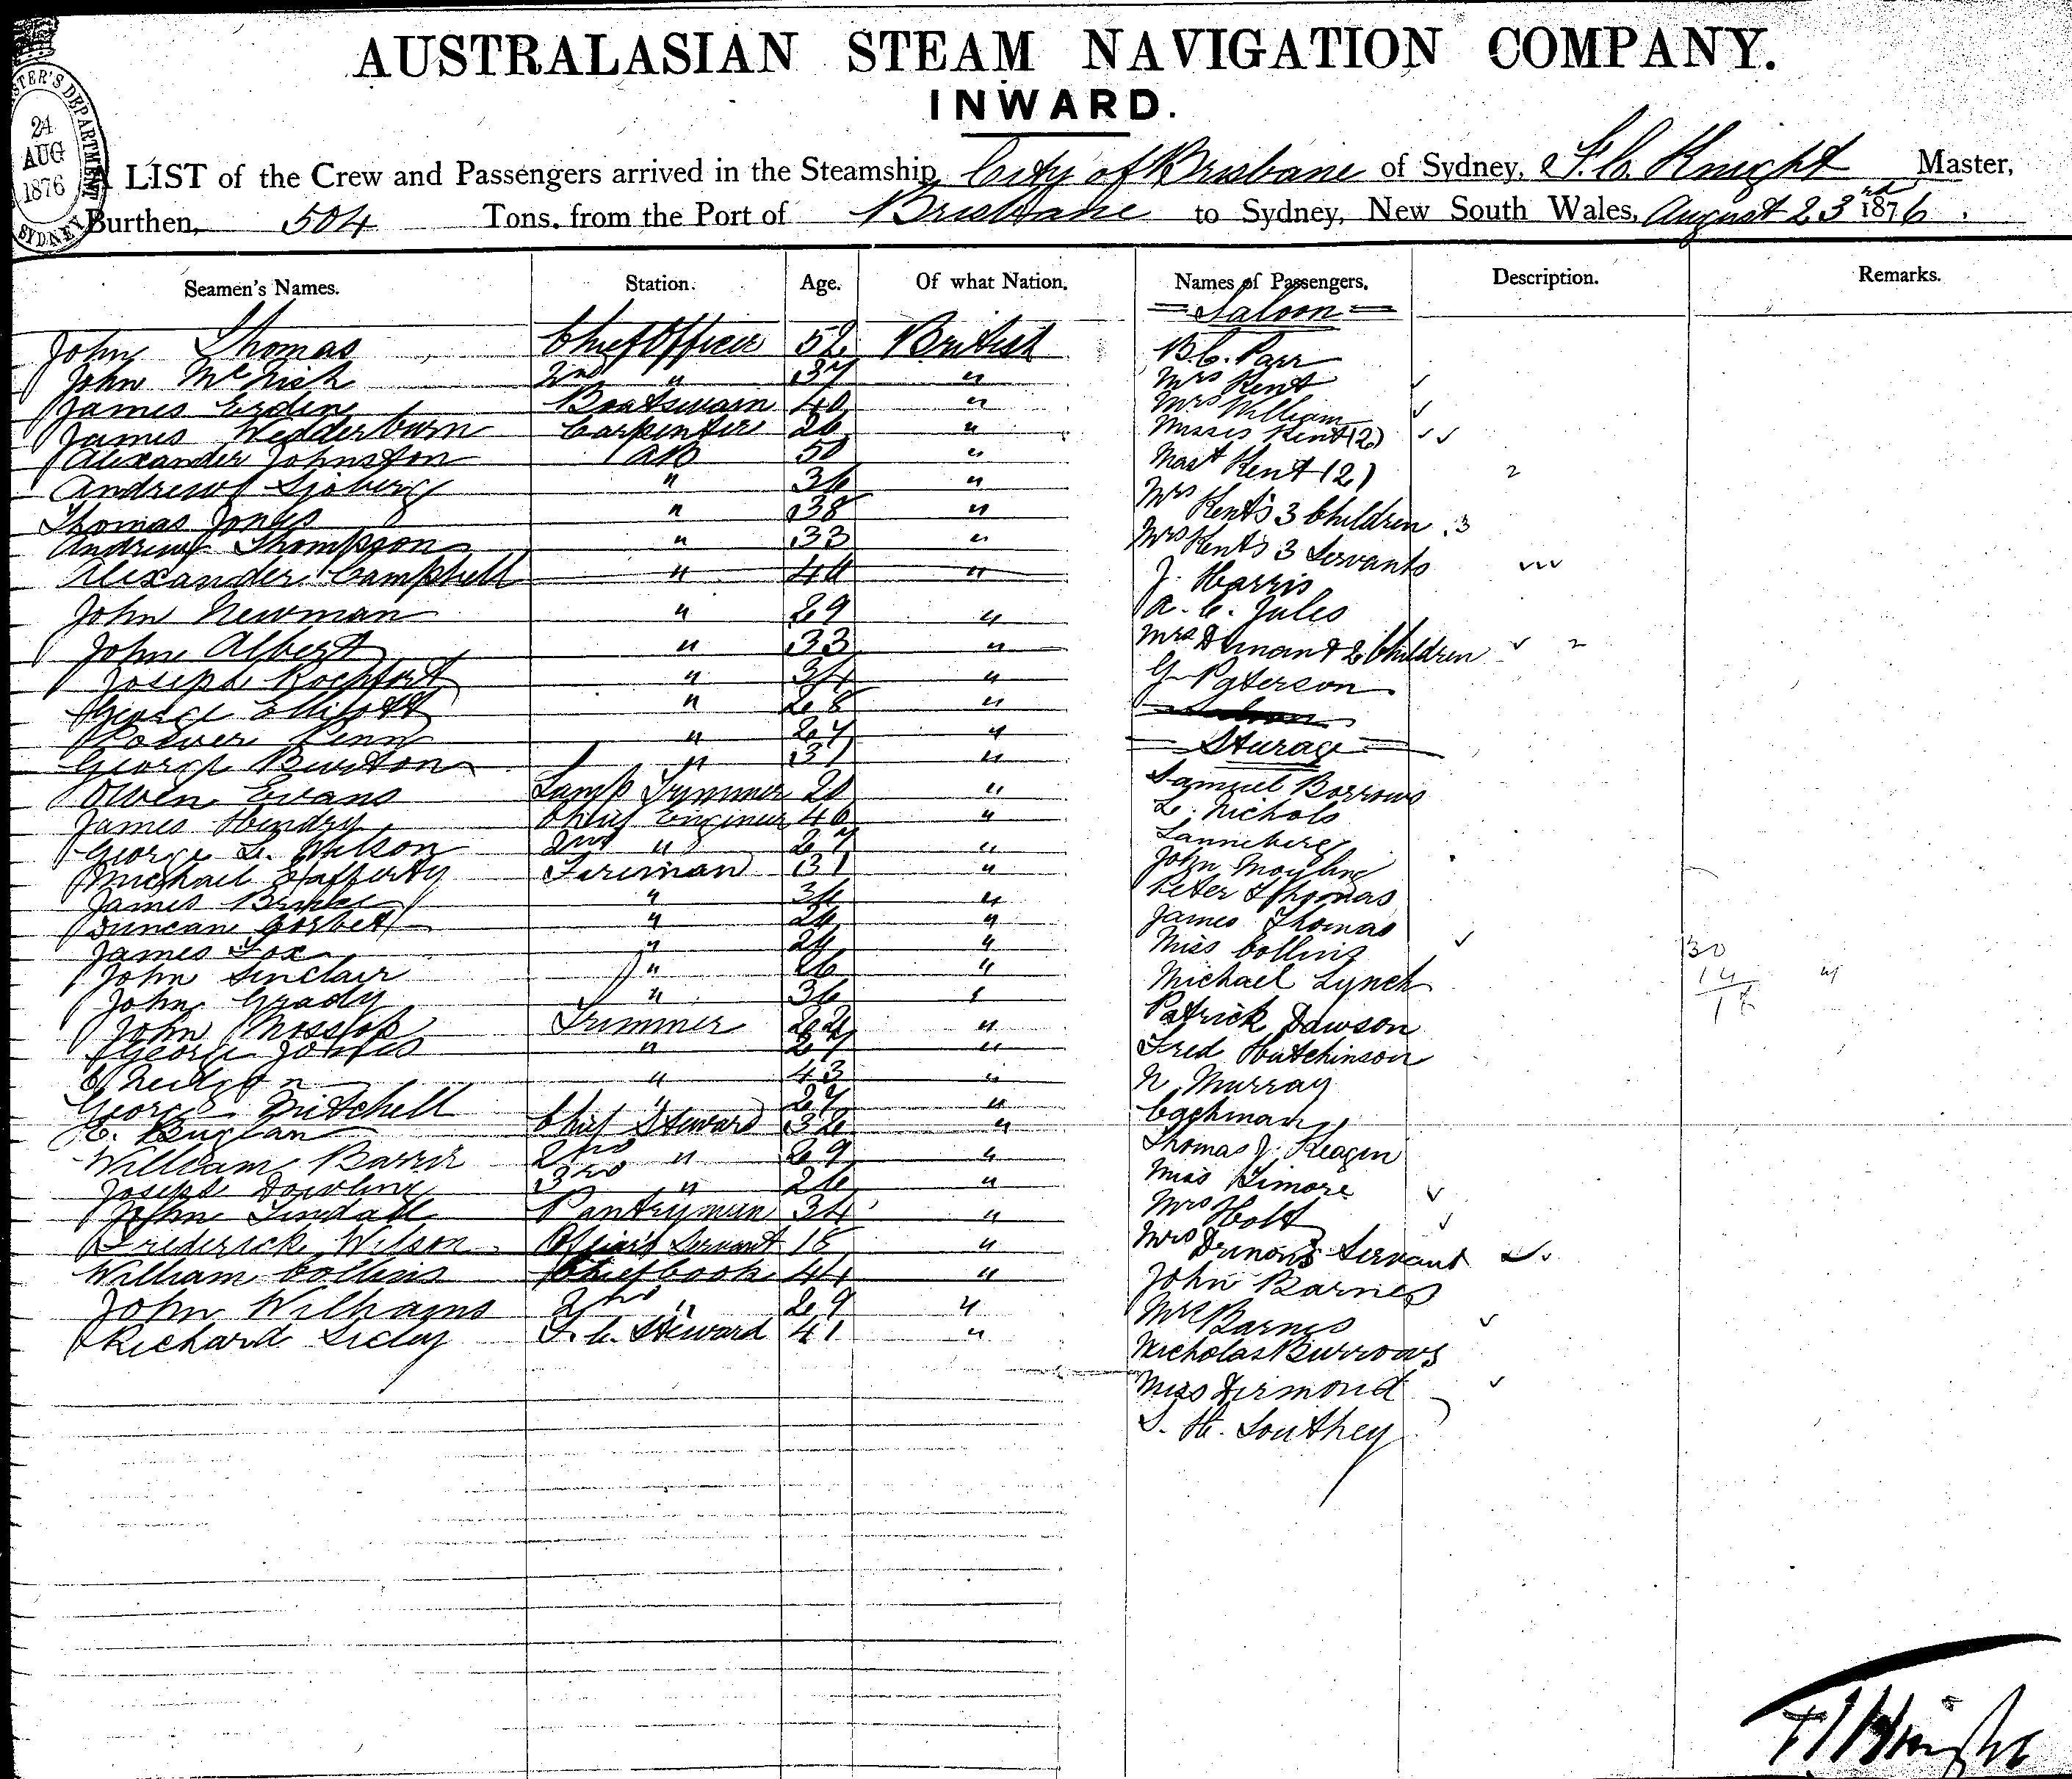 AUSTRALASIAN STEAM NAVIGATION COMPANY.
INWARD.
MASTER'S DEPARTMENT
24
AUG
1876
SYDNEY
A LIST of the Crew and Passengers arrived in the Steamship City of Brisbane of Sydney, F. C. Knight Master,
Burthen, 504 Tons, from the Port of Brisbane to Sydney, New South Wales, August 23rd 1876.
Seamen's Names. Station. Age. Of what Nation. Names of Passengers. Description. Remarks.
= Saloon =
John Thomas Chief Officer 52 British B. C. Parr
John McNish 2nd " 37 " Mrs Kent
James Boatswain 40 " Mrs William
James Wedderburn Carpenter 26 " Misses Kent (2)
Alexander Johnston AB 50 " Mast Kent (2) 2
Andrew Sjoberg " 36 "
Thomas Jones " 38 " Mrs Kent's 3 Children 3
Andrew Thompson " 33 " Mrs Kent's 3 Servants
Alexander Campbell " 44 " J. Harris
John Newman " 29 " A. C. Jules
John Albert " 33 " Mrs & 2 Children 2
Joseph Rochfort " 34 " G Paterson
George Elliott " 28 "
Penn " 27 " = Sturage =
George Burton " 37 "
Owen Evans Lamp Trimmer 20 " Samuel Borrows
James Hendry Chief Engineer 46 " L. Nichols
George L. Wilson 2nd " 27 " Lanneberg
Michael Rafferty Fireman 31 " John Moyling
James Burke " 34 " Peter Thomas
Duncan Corbett " 24 " James Thomas
James Fox " 24 " Miss Collins 30
John Sinclair " 26 " Michael Lynch 14
John Grady " 36 " Patrick Dawson
John Mossop Trimmer 22 "
George Jones " 27 " Fred Hutchinson
" 43 " N. Murray
George Mitchell " 27 " Cachman
C. Buglan Chief Steward 32 " Thomas J. Reagen
William Barrir 2nd " 29 "
Joseph Dowling 3rd " 26 " Miss Kimore
John Tindall Pantryman 34 " Mrs Holt
Frederick Wilson Officers Servant 18 " Mrs Servant
William Collins Chief Cook 44 " John Barnes
John Williams 2nd " 29 " Mrs Barnes
Richard Sicley F. C. Steward 41 " Nicholas Burrows
Miss Dirmond
S. H. Southey